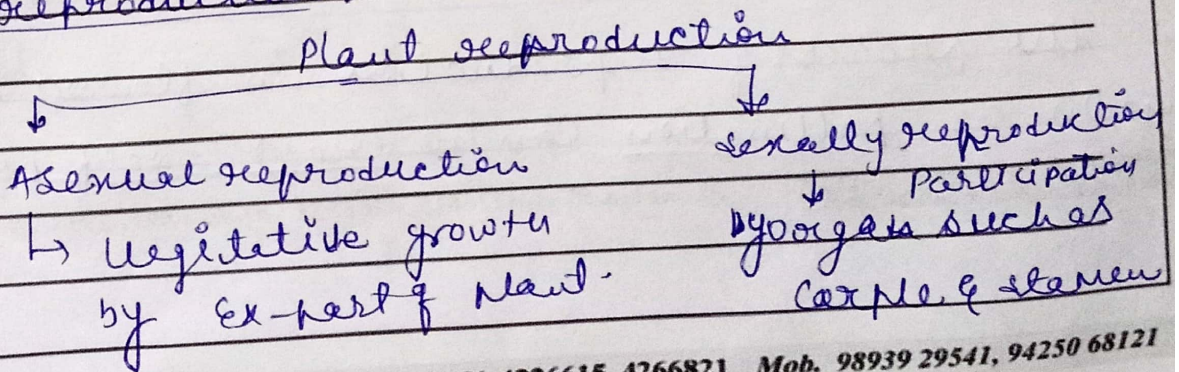 Plant reproduction
Asexual reproduction
↳ Vegitative growth
by Ex-part of plant.
Sexally reproduction
Participation
by organs such as
Carple & stamen
4266821 Mob. 98939 29541, 94250 68121